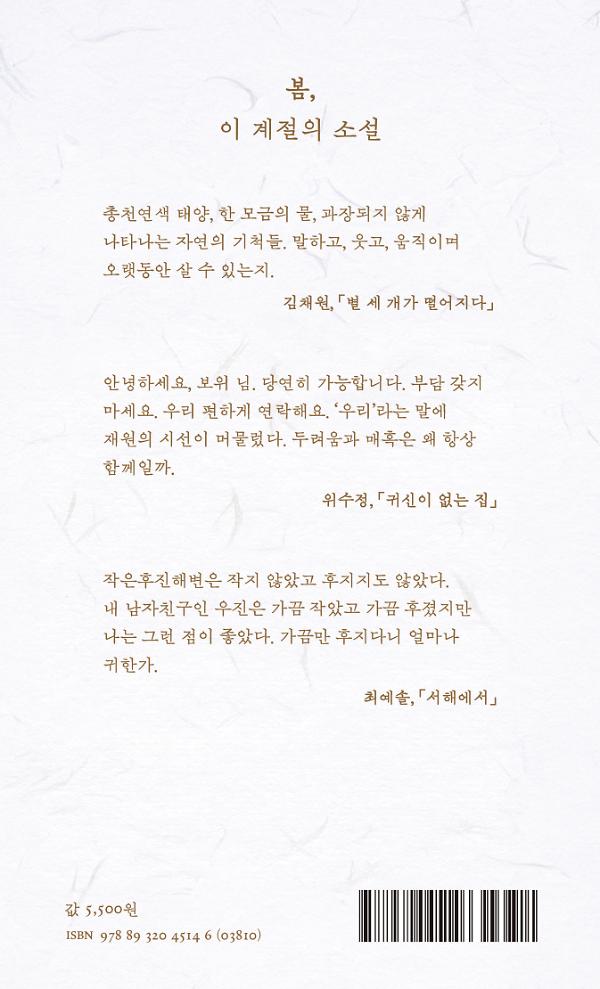 봄,
이 계절의 소설
총천연색 태양, 한 모금의 물, 과장되지 않게
나타나는 자연의 기척들. 말하고, 웃고, 움직이며
오랫동안 살 수 있는지.
김채원, 「별 세 개가 떨어지다」
안녕하세요, 보위 님. 당연히 가능합니다. 부담 갖지
마세요. 우리 편하게 연락해요. ‘우리’라는 말에
재원의 시선이 머물렀다. 두려움과 매혹은 왜 항상
함께일까.
위수정, 「귀신이 없는 집」
작은후진해변은 작지 않았고 후지지도 않았다.
내 남자친구인 우진은 가끔 작았고 가끔 후졌지만
나는 그런 점이 좋았다. 가끔만 후지다니 얼마나
귀한가.
최예솔, 「서해에서」
값 5,500원
ISBN 978 89 320 4514 6 (03810)